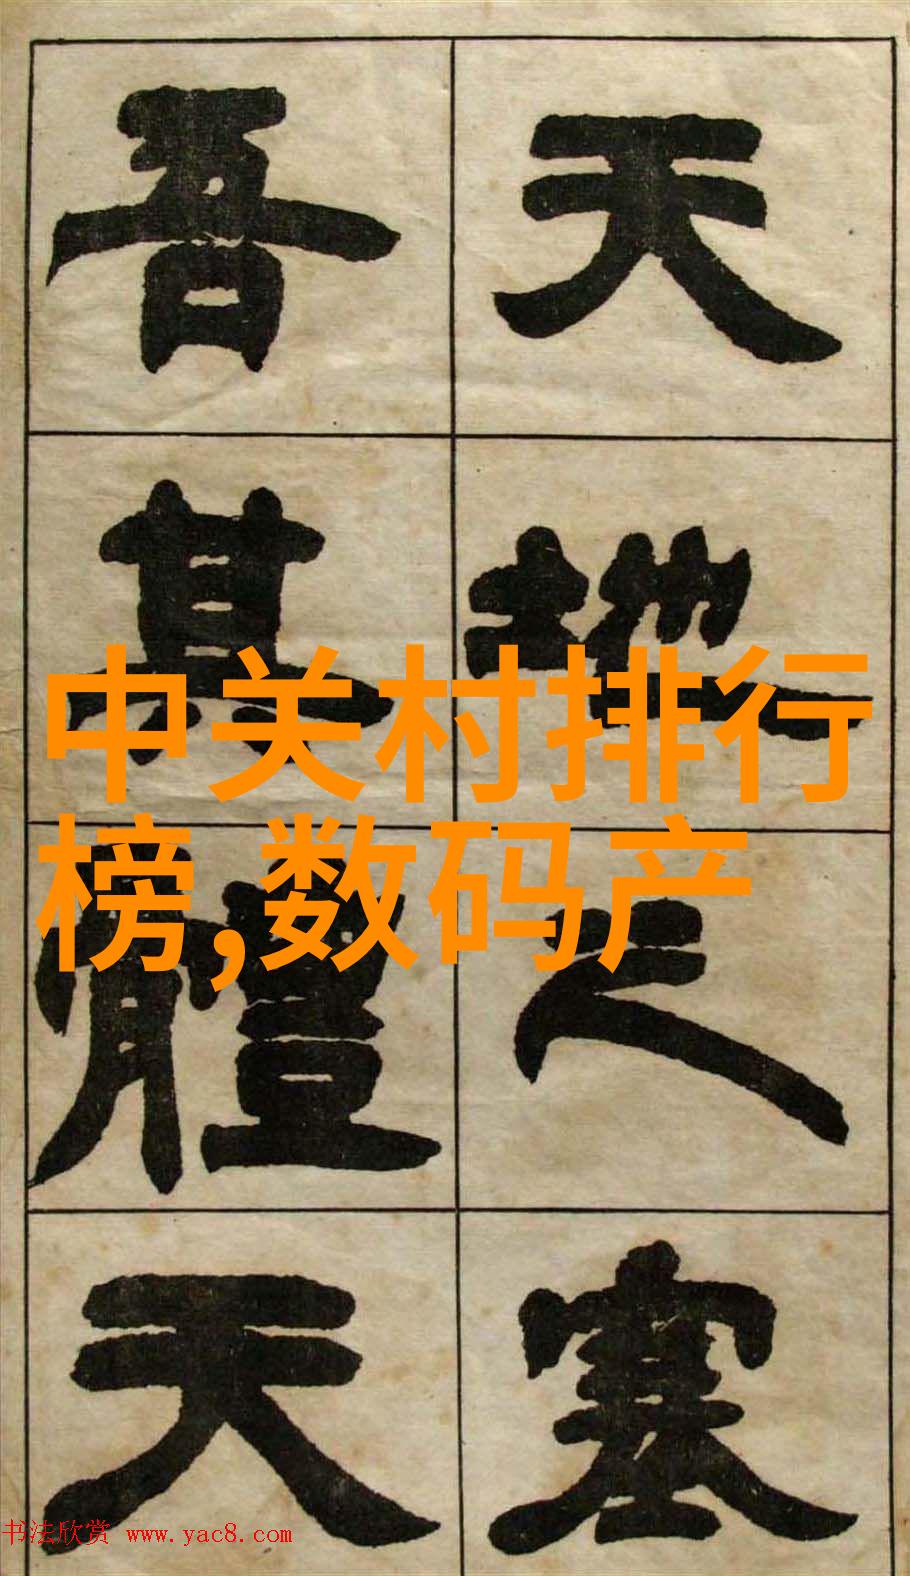 天地之塞
吾其體天
中关村排行
榜,数码产
书法欣赏 www.yac8.com